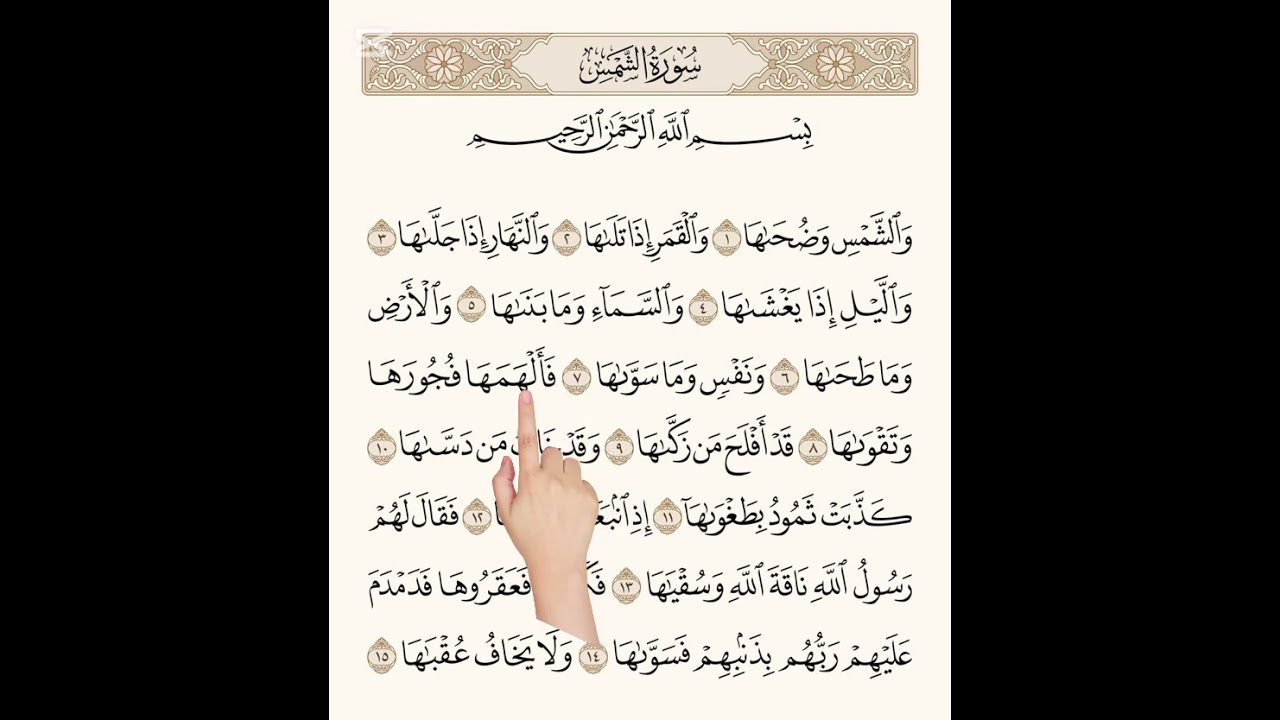 سُورَةُ الشَّمْسِ
بِسْمِ ٱللَّهِ ٱلرَّحْمَٰنِ ٱلرَّحِيمِ
وَٱلشَّمْسِ وَضُحَىٰهَا ١ وَٱلْقَمَرِ إِذَا تَلَىٰهَا ٢ وَٱلنَّهَارِ إِذَا جَلَّىٰهَا ٣
وَٱلَّيْلِ إِذَا يَغْشَىٰهَا ٤ وَٱلسَّمَآءِ وَمَا بَنَىٰهَا ٥ وَٱلْأَرْضِ
وَمَا طَحَىٰهَا ٦ وَنَفْسٍ وَمَا سَوَّىٰهَا ٧ فَأَلْهَمَهَا فُجُورَهَا
وَتَقْوَىٰهَا ٨ قَدْ أَفْلَحَ مَن زَكَّىٰهَا ٩ وَقَدْ مَن دَسَّىٰهَا ١٠
كَذَّبَتْ ثَمُودُ بِطَغْوَىٰهَآ ١١ إِذِ ١٢ فَقَالَ لَهُمْ
رَسُولُ ٱللَّهِ نَاقَةَ ٱللَّهِ وَسُقْيَٰهَا ١٣ فَعَقَرُوهَا فَدَمْدَمَ
عَلَيْهِمْ رَبُّهُم بِذَنۢبِهِمْ فَسَوَّىٰهَا ١٤ وَلَا يَخَافُ عُقْبَٰهَا ١٥